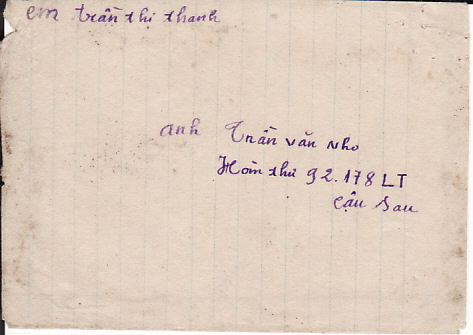 em trần thị thanh
anh Trần văn Nho
Hòm thư 92.178 LT
Cậu Sau